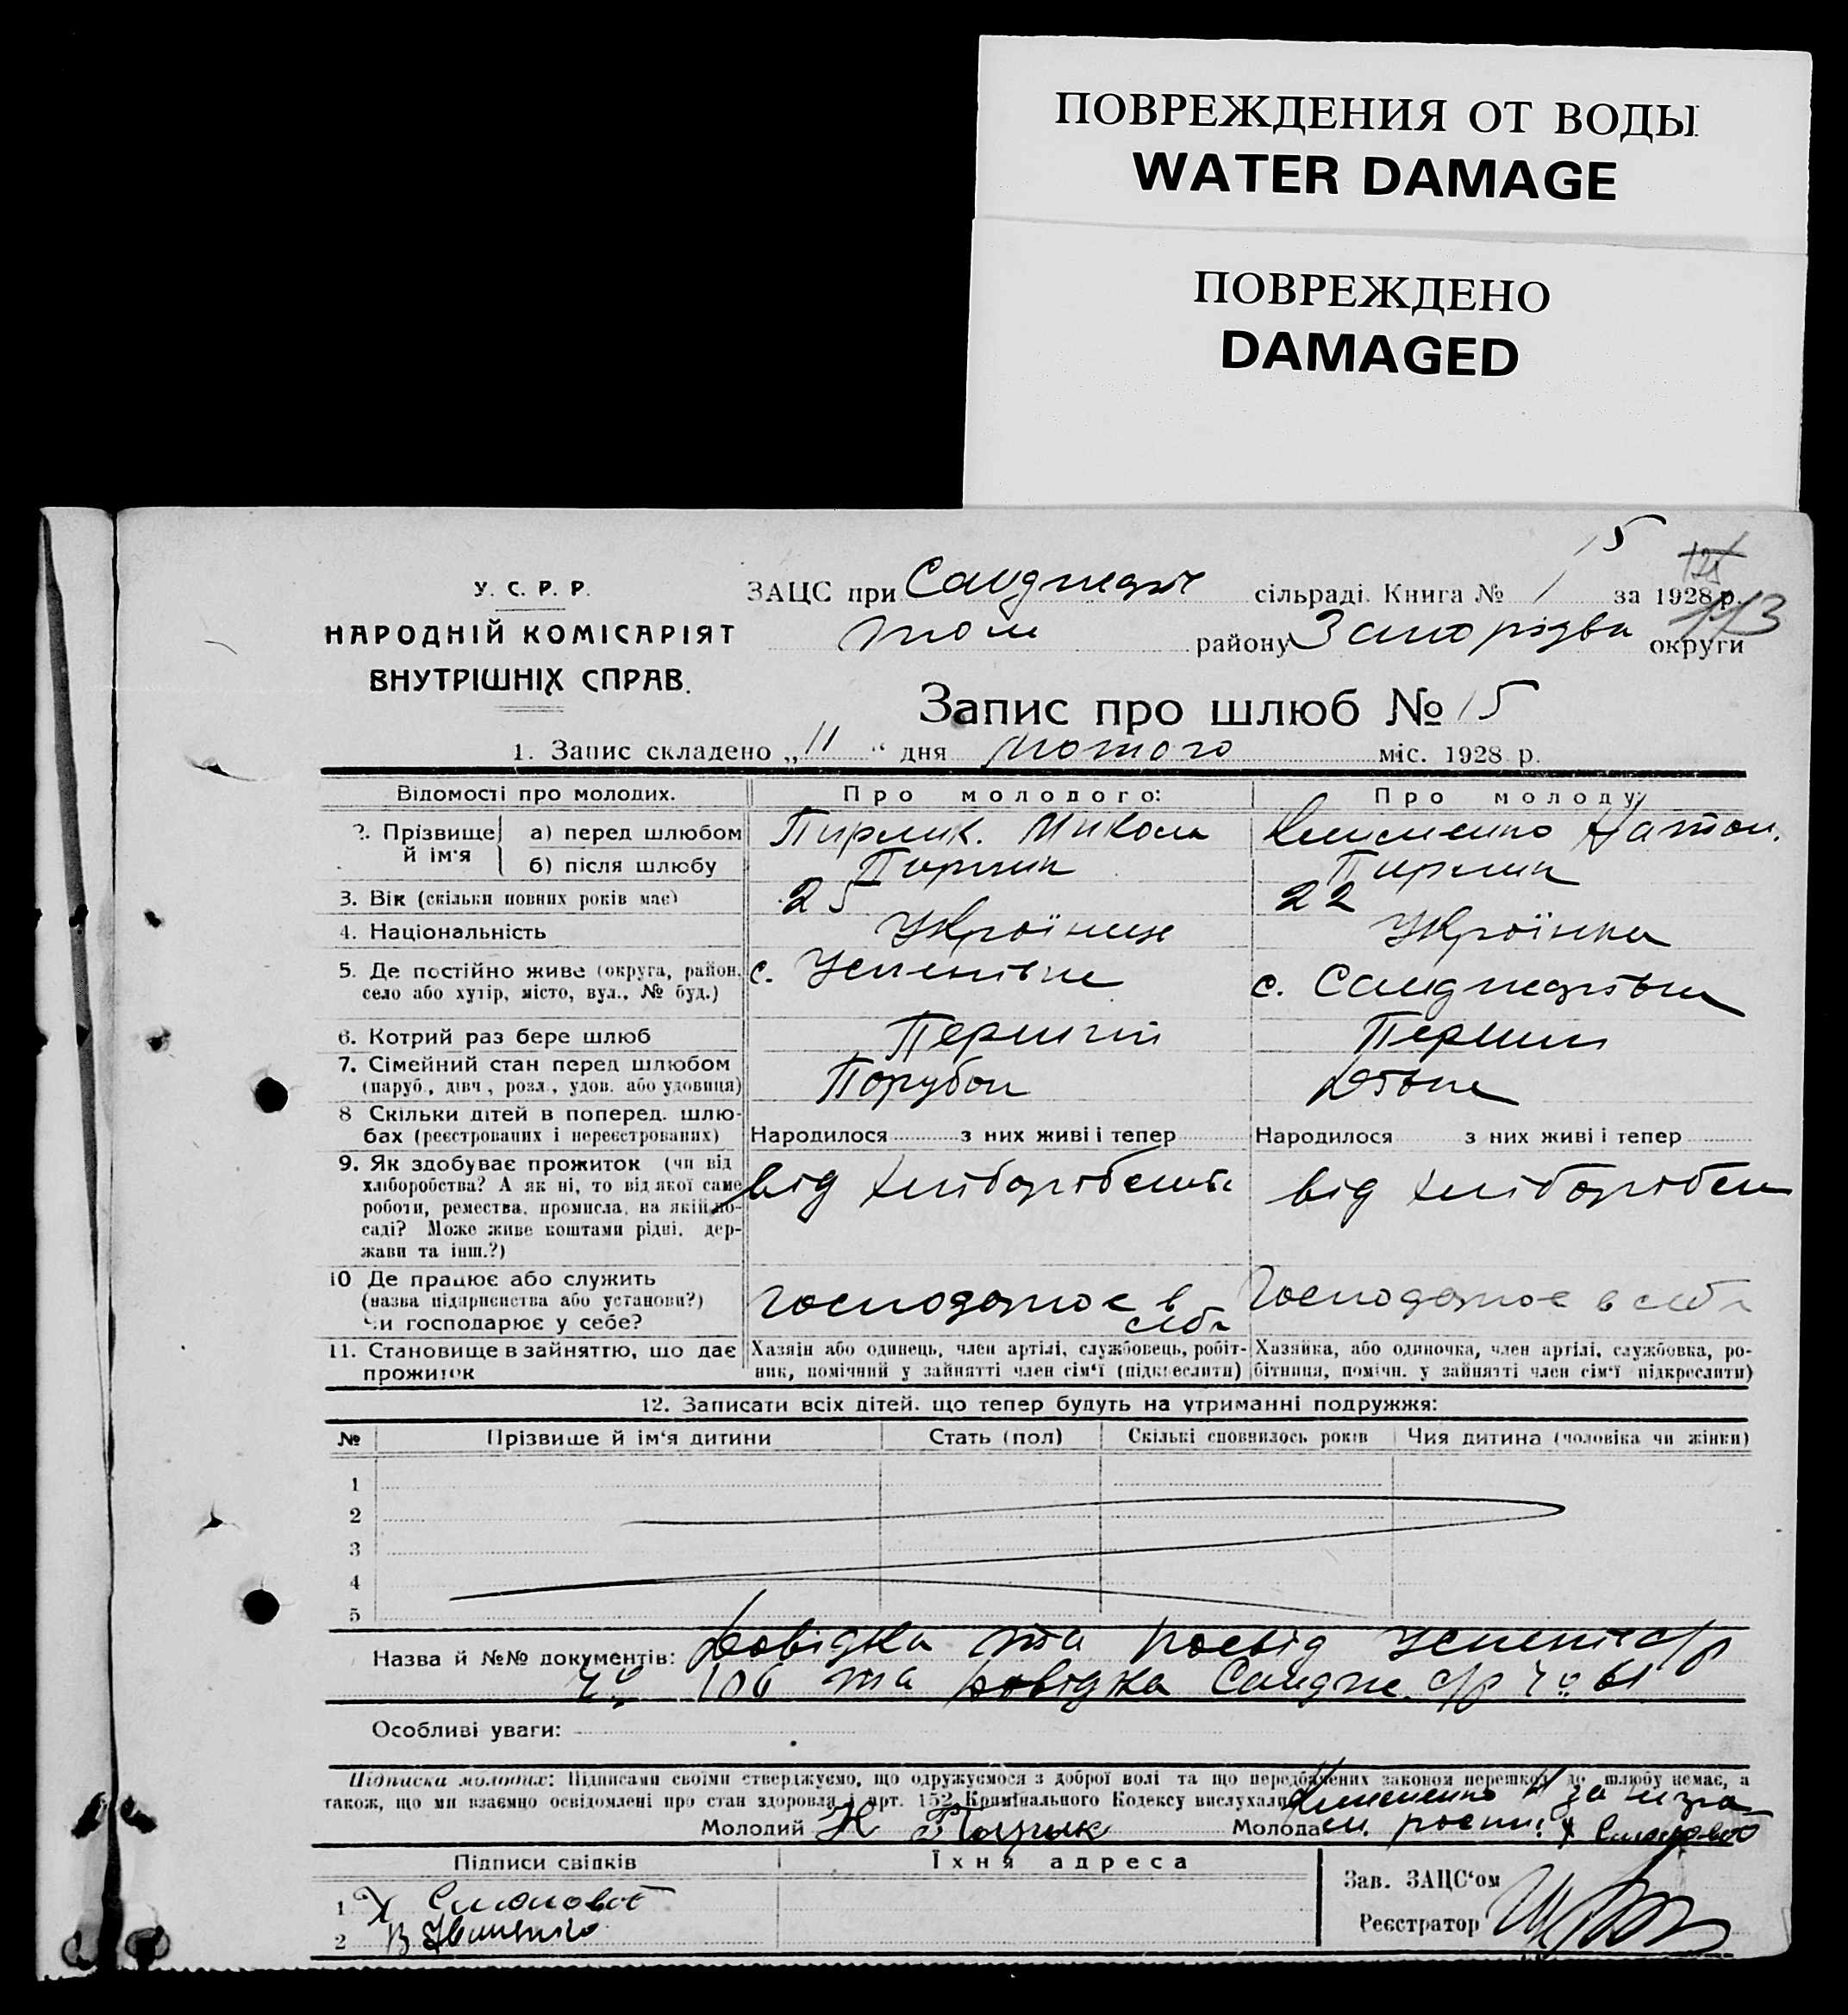 ПОВРЕЖДЕНИЯ ОТ ВОДЫ
WATER DAMAGE
ПОВРЕЖДЕНО
DAMAGED
15
113
У. С. Р. Р.
НАРОДНІЙ КОМІСАРІЯТ
ВНУТРІШНІХ СПРАВ.
ЗАЦС при сільраді. Книга № 1 за 1928 р.
району округи
Запис про шлюб № 15
1. Запис складено „11“ дня лютого міс. 1928 р.
Відомості про молодих. Про молодого: Про молоду:
2. Прізвище й ім'я
а) перед шлюбом Пирлик. Микола
б) після шлюбу Пирлик Пирлик
3. Вік (скільки повних років має) 25 22
4. Національність Україниць Українка
5. Де постійно живе (округа, район, село або хутір, місто, вул., № буд.) с. Успенівка с. Санджарівка
6. Котрий раз бере шлюб Перший Перший
7. Сімейний стан перед шлюбом (паруб., дівч., розл., удов. або удовиця) Парубок
8 Скільки дітей в поперед. шлюбах (реєстрованих і нереєстрованих) Народилося з них живі і тепер Народилося з них живі і тепер
9. Як здобуває прожиток (чи від хліборобства? А як ні, то від якої саме роботи, ремества, промисла, на якій посаді? Може живе коштами рідні, держави та інш.?) від хліборобства від
10 Де працює або служить (назва підприємства або установи?) Чи господарює у себе? господарює в себе господарює в себе
11. Становище в зайняттю, що дає прожиток
Хазяїн або одинець, член артілі, службовець, робітник, помічний у зайнятті член сім'ї (підкреслити)
Хазяйка, або одиночка, член артілі, службовка, робітниця, помічн. у зайнятті член сім'ї підкреслити)
12. Записати всіх дітей, що тепер будуть на утриманні подружжя:
№ Прізвище й ім'я дитини Стать (пол) Скількі сповнилось років Чия дитина (чоловіка чи жінки)
1
2
3
4
5
Назва й №№ документів: Довідка та
106 та довідка 61
Особливі уваги:
Підписка молодих: Підписами своїми стверджуємо, що одружуємося з доброї волі та що передбачених законом перешкод до шлюбу немає, а
також, що ми взаємно освідомлені про стан здоровля і арт. 152 Кримінального Кодексу вислухали
Молодий Молода
Підписи свідків Їхня адреса
Зав. ЗАЦС'ом
1
Реєстратор
2